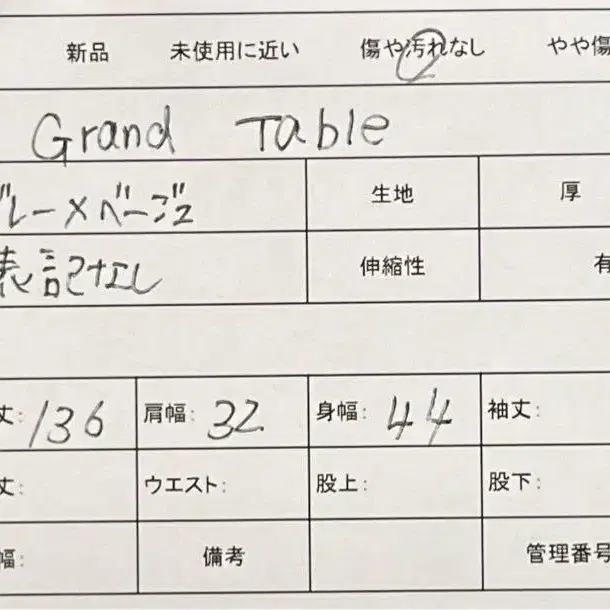 新品 未使用に近い 傷や汚れなし やや傷
Grand Table
グレー×ベージュ 生地 厚
表記なし 伸縮性 有
丈: 136 肩幅: 32 身幅: 44 袖丈:
丈: ウエスト: 股上: 股下:
幅: 備考 管理番号